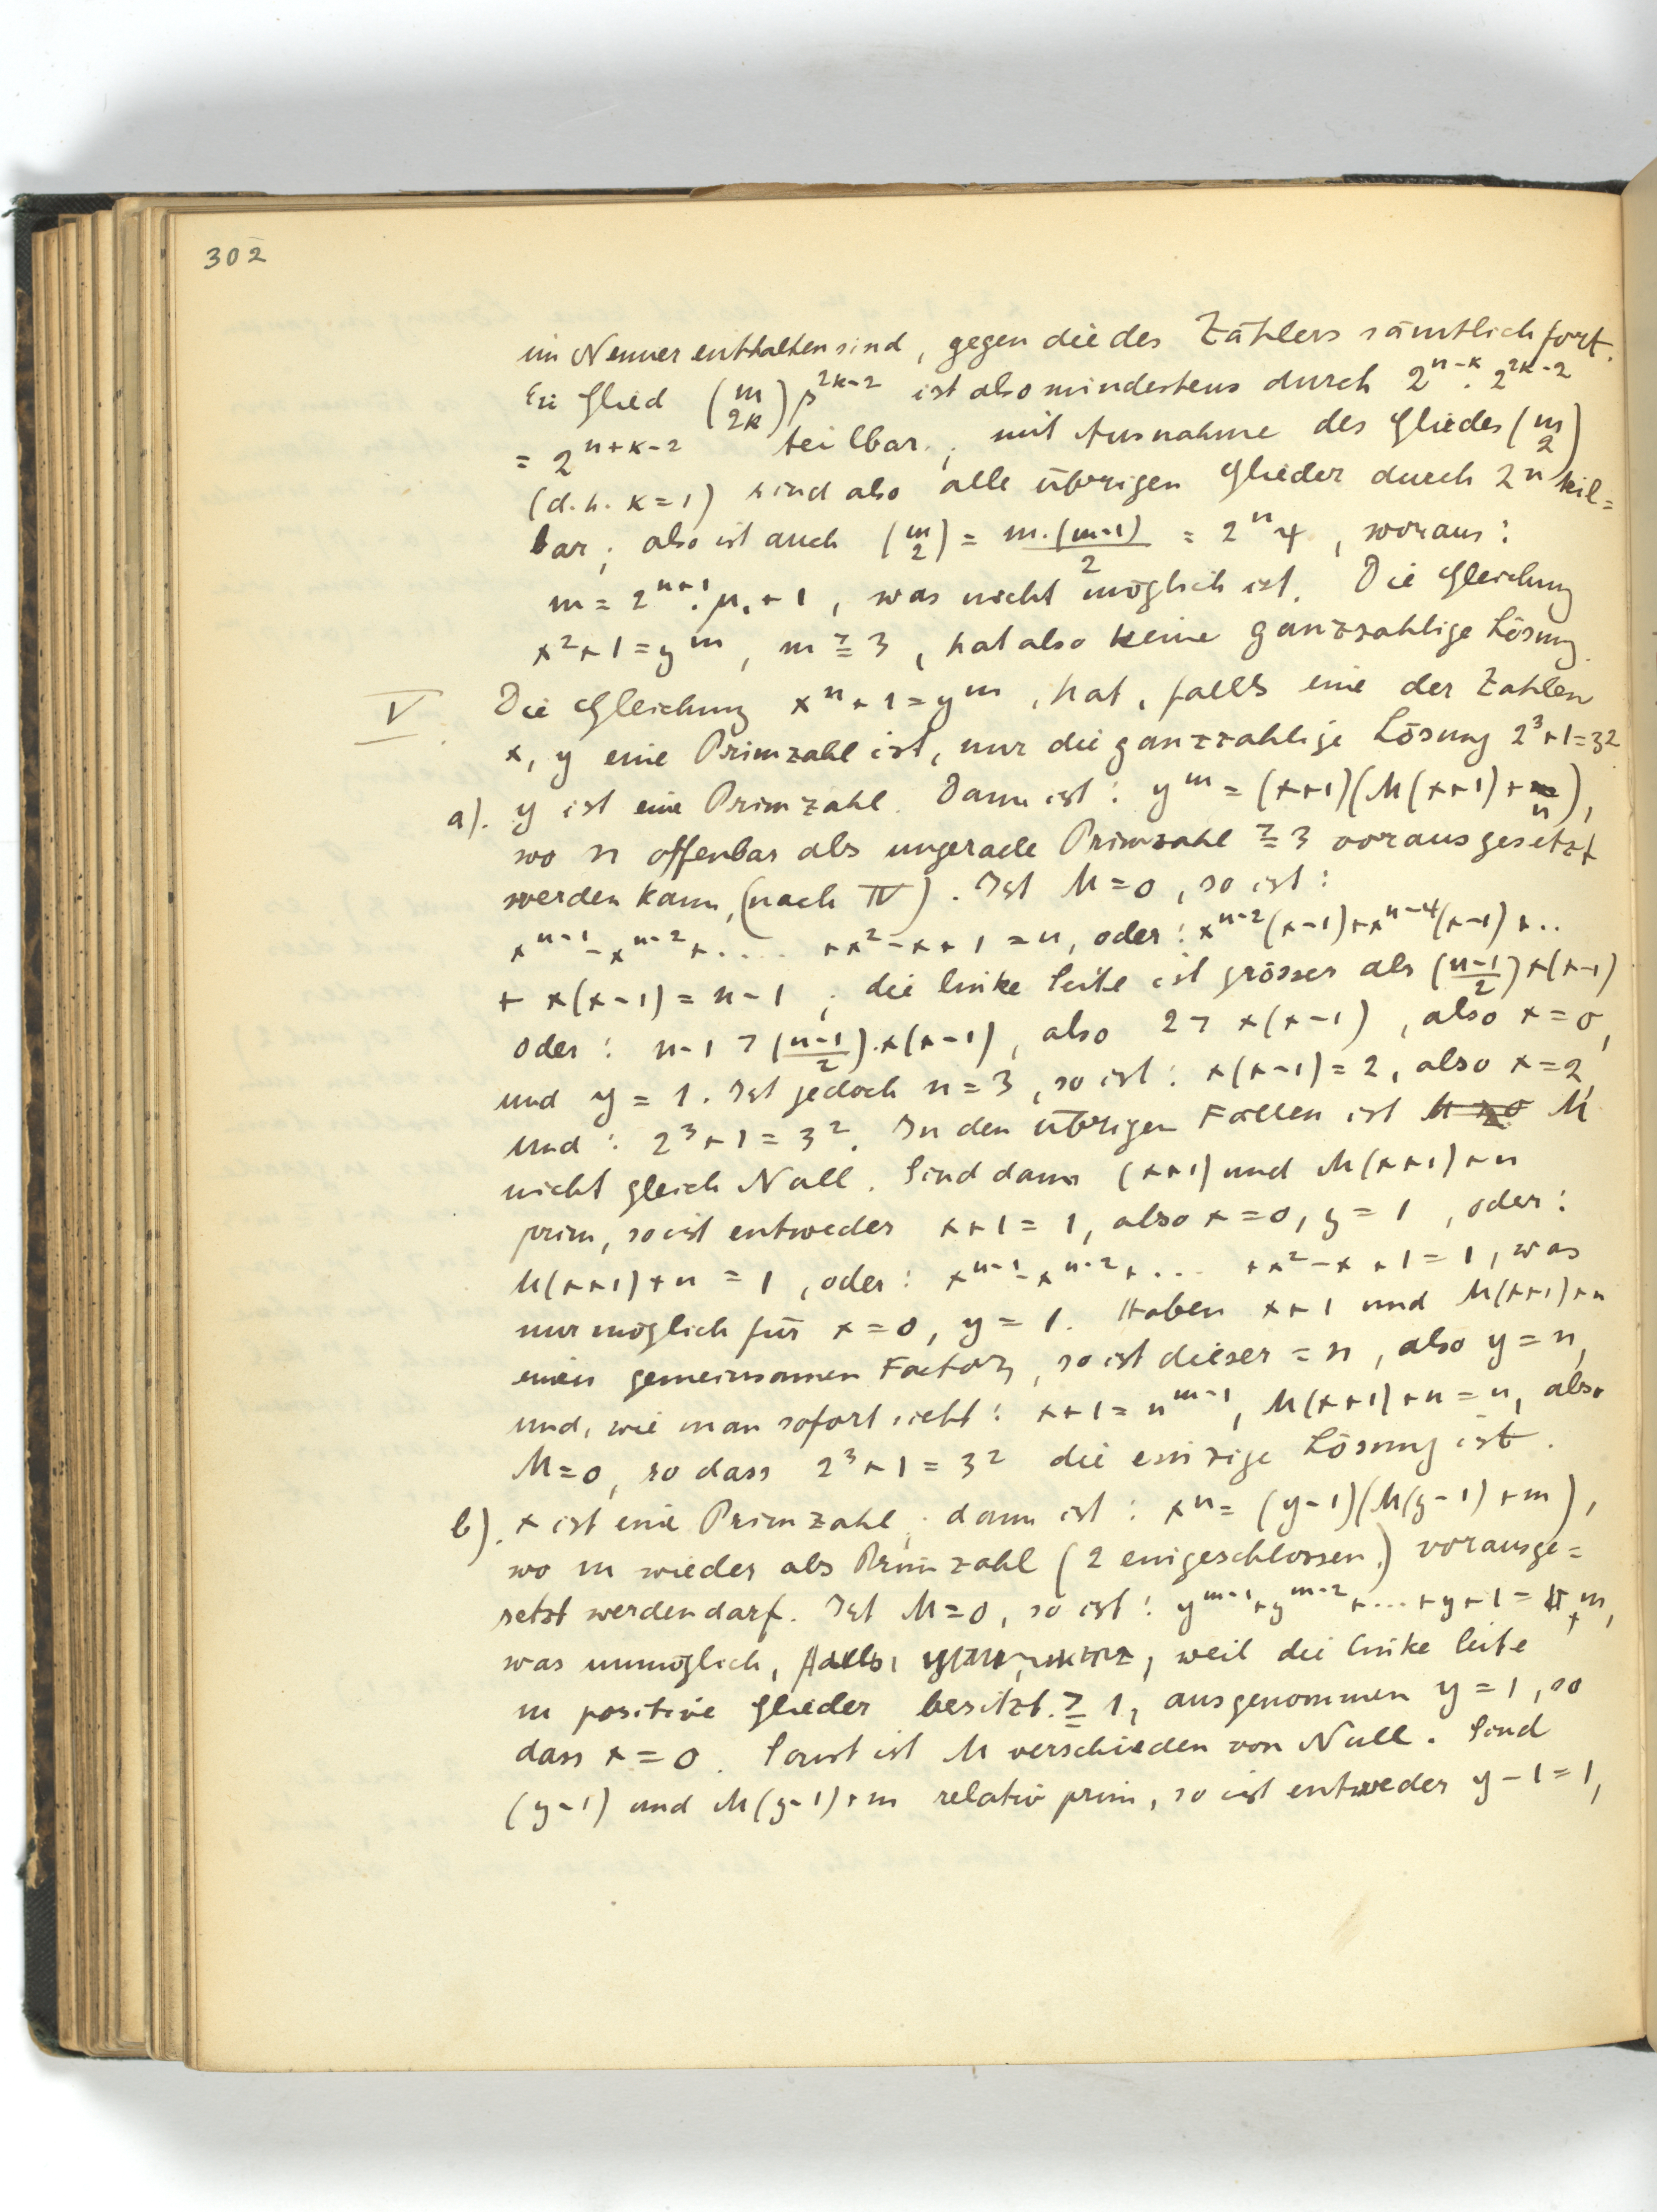 302
im Nenner enthalten sind, gegen die des Zählers sämtlich fort.
Ein Glied (m über 2k) β^{2k-2} ist also mindestens durch 2^{n-k} · 2^{2k-2}
= 2^{n+k-2} teilbar; mit Ausnahme des Gliedes (m über 2)
(d.h. k=1) sind also alle übrigen Glieder durch 2^n teil=
bar; also ist auch (m über 2) = m·(m-1)/2 = 2^n 4, woraus:
m = 2^{n+1}·μ₁+1, was nicht möglich ist. Die Gleichung
x²+1=y^m, m ≧ 3, hat also keine ganzzahlige Lösung.
V. Die Gleichung x^n+1=y^m, hat, falls eine der Zahlen
x, y eine Primzahl ist, nur die ganzzahlige Lösung 2³+1=3²
a). y ist eine Primzahl. Dann ist: y^m = (x+1)(M(x+1)+n),
wo n offenbar als ungerade Primzahl ≧ 3 vorausgesetzt
werden kann, (nach IV). Ist M=0, so ist:
x^{n-1}-x^{n-2}+.... +x²-x+1=n, oder: x^{n-2}(x-1)+x^{n-4}(x-1)+..
+ x(x-1) = n-1; die linke Seite ist grösser als ((n-1)/2)x(x-1)
oder: n-1 > ((n-1)/2)·x(x-1), also 2 > x(x-1), also x=0,
und y = 1. Ist jedoch n=3, so ist: x(x-1)=2, also x=2,
und: 2³+1=3². In den übrigen Fällen ist M
nicht gleich Null. Sind dann (x+1) und M(x+1)+n
prim, so ist entweder x+1=1, also x=0, y=1, oder:
M(x+1)+n = 1, oder: x^{n-1}-x^{n-2}+... +x²-x+1=1, was
nur möglich für x=0, y=1. Haben x+1 und M(x+1)+n
einen gemeinsamen Factor, so ist dieser = n, also y=n,
und, wie man sofort sieht: x+1=n^{m-1}, M(x+1)+n=n, also
M=0, so dass 2³+1=3² die einzige Lösung ist.
b). x ist eine Primzahl; dann ist: x^n=(y-1)(M(y-1)+m),
wo m wieder als Primzahl (2 eingeschlossen) vorausge=
setzt werden darf. Ist M=0, so ist: y^{m-1}+y^{m-2}+...+y+1 = m,
was unmöglich, weil die linke Seite
m positive Glieder besitzt ≧ 1, ausgenommen y=1, so
dass x=0. Sonst ist M verschieden von Null. Sind
(y-1) und M(y-1)+m relativ prim, so ist entweder y-1=1,